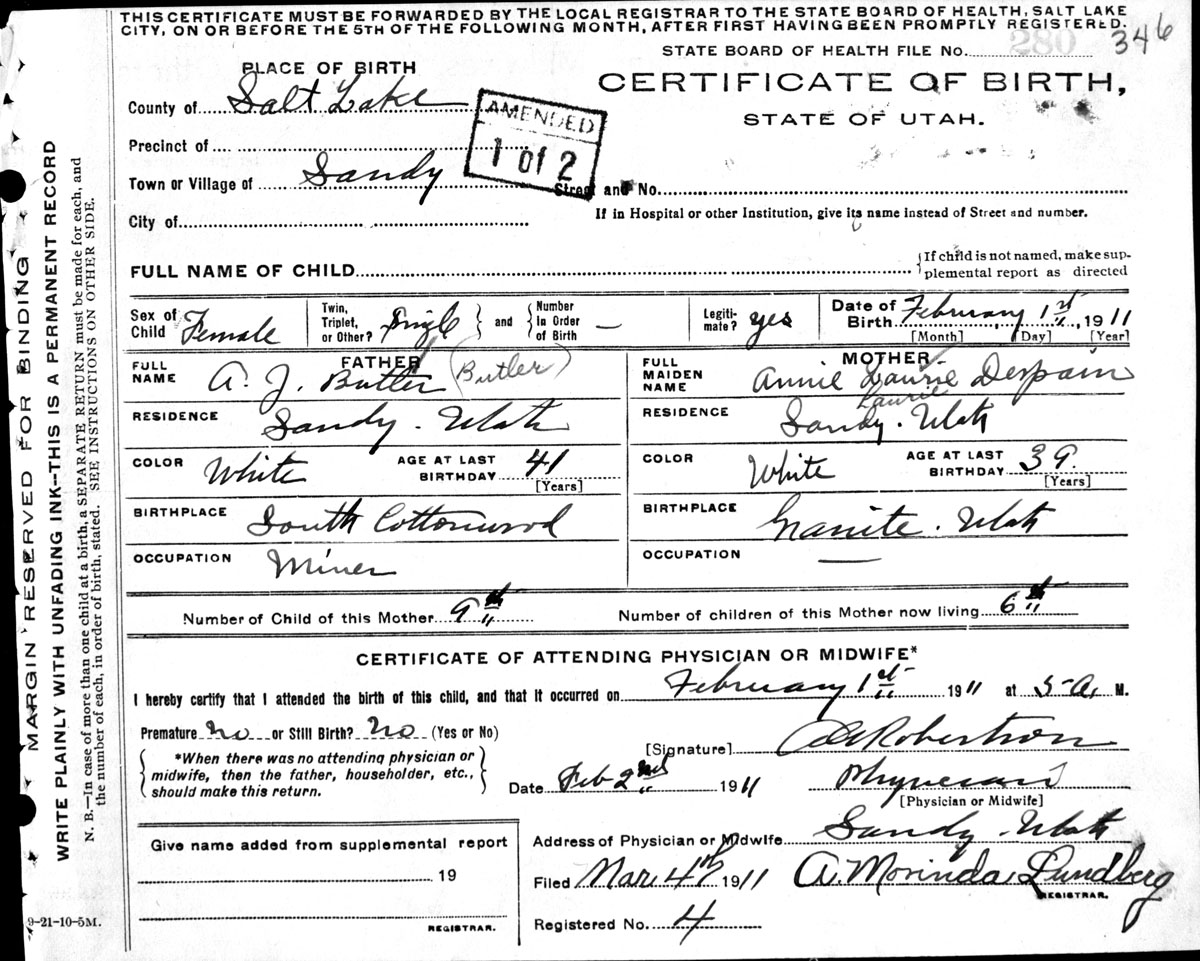 THIS CERTIFICATE MUST BE FORWARDED BY THE LOCAL REGISTRAR TO THE STATE BOARD OF HEALTH, SALT LAKE
CITY, ON OR BEFORE THE 5TH OF THE FOLLOWING MONTH, AFTER FIRST HAVING BEEN PROMPTLY REGISTERED.
STATE BOARD OF HEALTH FILE No. 280 346
PLACE OF BIRTH
CERTIFICATE OF BIRTH,
STATE OF UTAH.
County of Salt Lake
AMENDED
1 of 2
Precinct of
Town or Village of Sandy
Street and No.
City of
If in Hospital or other Institution, give its name instead of Street and number.
FULL NAME OF CHILD
If child is not named, make sup-
plemental report as directed
Sex of Child Female
Twin, Triplet, or Other? Single
and
Number In Order of Birth –
Legiti-mate? yes
Date of Birth February 1st, 1911
[Month] [Day] [Year]
FATHER
FULL NAME A. J. Butler (Butler)
MOTHER
FULL MAIDEN NAME Annie Laurie Despain
Laurie
RESIDENCE Sandy. Utah
RESIDENCE Sandy. Utah
COLOR White
AGE AT LAST BIRTHDAY 41
[Years]
COLOR White
AGE AT LAST BIRTHDAY 39.
[Years]
BIRTHPLACE South Cottonwood
BIRTHPLACE Granite. Utah
OCCUPATION Miner
OCCUPATION —
Number of Child of this Mother 9th
Number of children of this Mother now living 6th
CERTIFICATE OF ATTENDING PHYSICIAN OR MIDWIFE*
I hereby certify that I attended the birth of this child, and that it occurred on February 1st 1911 at 5 A. M.
Premature No or Still Birth? No (Yes or No)
*When there was no attending physician or
midwife, then the father, householder, etc.,
should make this return.
[Signature] Robertson
Date Feb 2nd 1911
Physician
[Physician or Midwife]
Address of Physician or Midwife Sandy. Utah
Give name added from supplemental report
19
REGISTRAR.
Filed Mar. 4th 1911
A. Morinda Lundberg
REGISTRAR.
Registered No. 4
9-21-10-5M.
MARGIN RESERVED FOR BINDING
WRITE PLAINLY WITH UNFADING INK--THIS IS A PERMANENT RECORD
N. B.—In case of more than one child at a birth, a SEPARATE RETURN must be made for each, and
the number of each, in order of birth, stated. SEE INSTRUCTIONS ON OTHER SIDE.